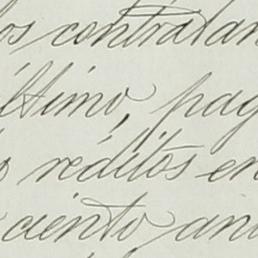 los contratan
último, pag
réditos en
ciento anu